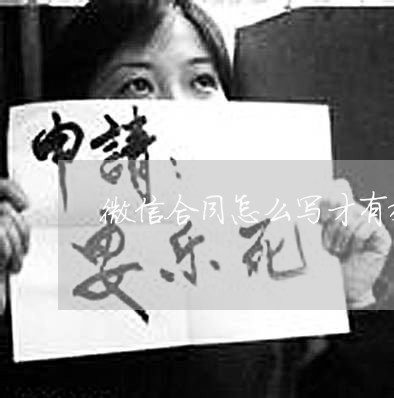 申請：
微信合同怎么写才有
乐死